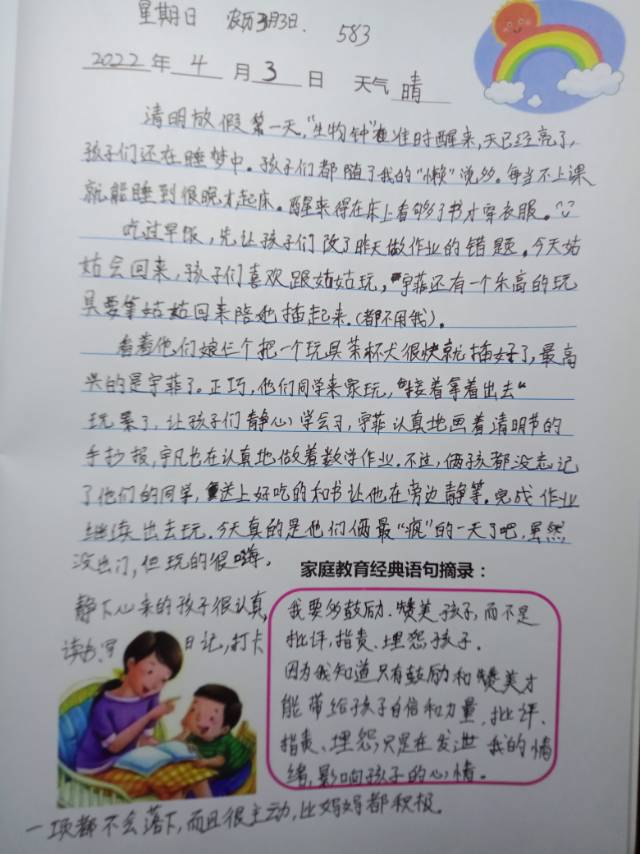 星期日 农历3月3日. 583
2022年4月3日 天气晴
清明放假第一天,“生物钟”准时醒来,天已经亮了,
孩子们还在睡梦中。孩子们都随了我的“懒”说多。每当不上课
就能睡到很晚才起床。醒来得在床上看够了书才穿衣服。
吃过早饭,先让孩子们改了昨天做作业的错题。今天姑
姑会回来,孩子们喜欢跟姑姑玩,宇菲还有一个乐高的玩
具要等姑姑回来陪她插起来.(都不用我)。
看着他们娘仨个把一个玩具茶杯犬很快就插好了,最高
兴的是宇菲了。正巧,他们同学来家玩,“接着拿着出去“
玩累了,让孩子们静心学会习,宇菲认真地画着清明节的
手抄报,宇凡也在认真地做着数学作业.不过,俩孩都没忘记
了他们的同学,送上好吃的和书让他在旁边静等。完成作业
继续出去玩。今天真的是他们俩最“疯”的一天了吧,虽然
没出门,但玩的很嗨。
家庭教育经典语句摘录:
静下心来的孩子很认真,
读书、写日记,打卡
我要多鼓励、赞美孩子,而不是
批评,指责、埋怨孩子.
因为我知道只有鼓励和赞美才
能带给孩子自信和力量,批评、
指责、埋怨,只是在发泄我的情
绪,影响孩子的心情。
一项都不会落下,而且很主动,比妈妈都积极。